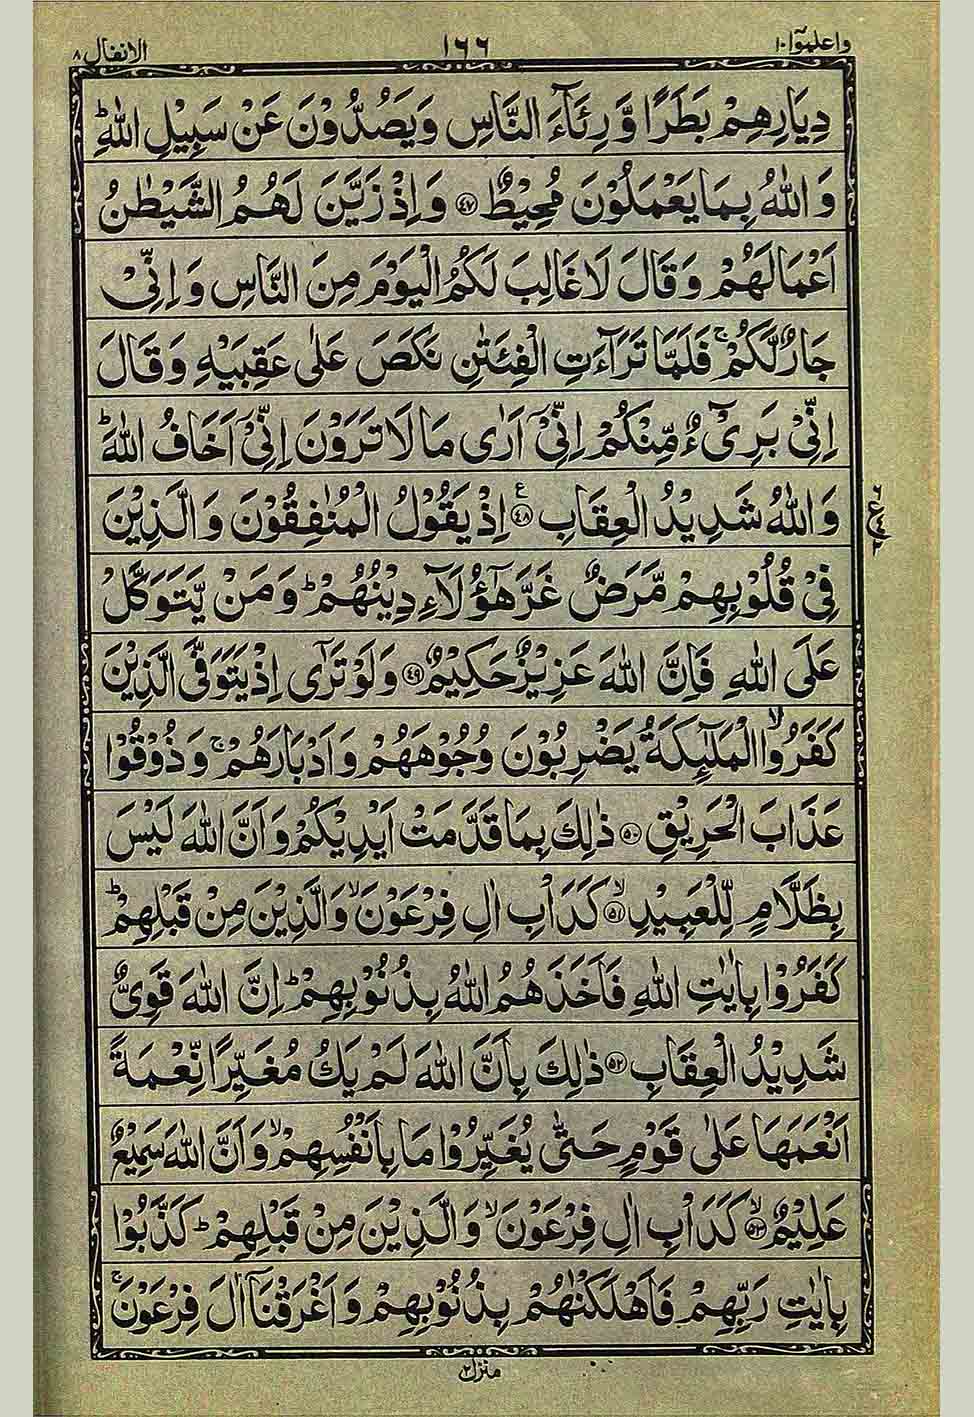 واعلموٓا ١٠
١٦٦
الانفال ٨
دِيَارِهِمْ بَطَرًا وَّ رِئَآءَ النَّاسِ وَيَصُدُّوْنَ عَنْ سَبِيْلِ اللّٰهِ ؕ
وَاللّٰهُ بِمَا يَعْمَلُوْنَ مُحِيْطٌ ﴿۴۷﴾ وَاِذْ زَيَّنَ لَهُمُ الشَّيْطٰنُ
اَعْمَالَهُمْ وَقَالَ لَا غَالِبَ لَكُمُ الْيَوْمَ مِنَ النَّاسِ وَاِنِّيْ
جَارٌ لَّكُمْ ۚ فَلَمَّا تَرَآءَتِ الْفِئَتٰنِ نَكَصَ عَلٰى عَقِبَيْهِ وَقَالَ
اِنِّيْ بَرِيْٓءٌ مِّنْكُمْ اِنِّيْٓ اَرٰى مَا لَا تَرَوْنَ اِنِّيْٓ اَخَافُ اللّٰهَ ؕ
وَاللّٰهُ شَدِيْدُ الْعِقَابِ ﴿۴۸﴾ ع اِذْ يَقُوْلُ الْمُنٰفِقُوْنَ وَالَّذِيْنَ
فِيْ قُلُوْبِهِمْ مَّرَضٌ غَرَّ هٰٓؤُلَآءِ دِيْنُهُمْ ؕ وَمَنْ يَّتَوَكَّلْ
عَلَى اللّٰهِ فَاِنَّ اللّٰهَ عَزِيْزٌ حَكِيْمٌ ﴿۴۹﴾ وَلَوْ تَرٰٓى اِذْ يَتَوَفَّى الَّذِيْنَ
كَفَرُوا ۙ الْمَلٰٓئِكَةُ يَضْرِبُوْنَ وُجُوْهَهُمْ وَاَدْبَارَهُمْ ۚ وَذُوْقُوْا
عَذَابَ الْحَرِيْقِ ﴿۵۰﴾ ذٰلِكَ بِمَا قَدَّمَتْ اَيْدِيْكُمْ وَاَنَّ اللّٰهَ لَيْسَ
بِظَلَّامٍ لِّلْعَبِيْدِ ۙ﴿۵۱﴾ كَدَاْبِ اٰلِ فِرْعَوْنَ ۙ وَالَّذِيْنَ مِنْ قَبْلِهِمْ ؕ
كَفَرُوْا بِاٰيٰتِ اللّٰهِ فَاَخَذَهُمُ اللّٰهُ بِذُنُوْبِهِمْ ؕ اِنَّ اللّٰهَ قَوِيٌّ
شَدِيْدُ الْعِقَابِ ﴿۵۲﴾ ذٰلِكَ بِاَنَّ اللّٰهَ لَمْ يَكُ مُغَيِّرًا نِّعْمَةً
اَنْعَمَهَا عَلٰى قَوْمٍ حَتّٰى يُغَيِّرُوْا مَا بِاَنْفُسِهِمْ ۙ وَاَنَّ اللّٰهَ سَمِيْعٌ
عَلِيْمٌ ۙ﴿۵۳﴾ كَدَاْبِ اٰلِ فِرْعَوْنَ ۙ وَالَّذِيْنَ مِنْ قَبْلِهِمْ ؕ كَذَّبُوْا
بِاٰيٰتِ رَبِّهِمْ فَاَهْلَكْنٰهُمْ بِذُنُوْبِهِمْ وَاَغْرَقْنَآ اٰلَ فِرْعَوْنَ ۚ
منزل ٢